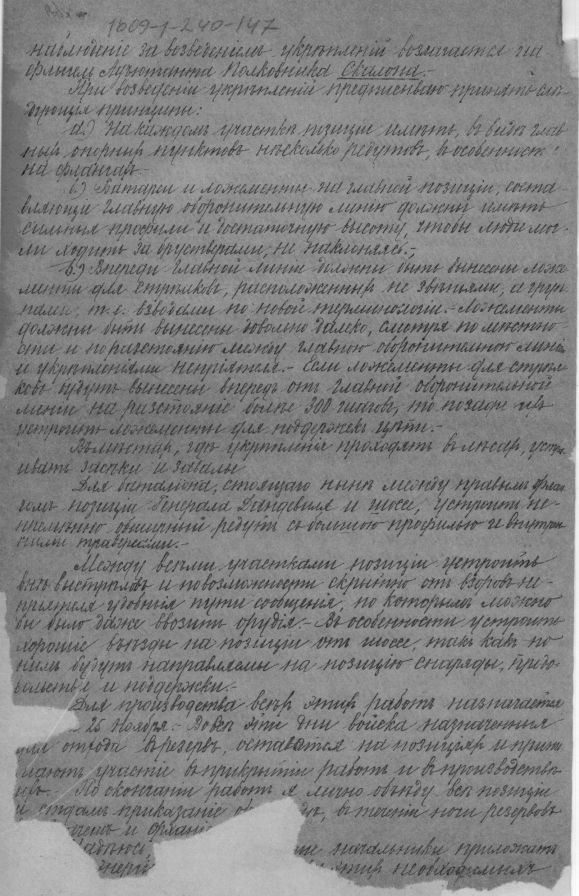 1609-1-240-147
наблюденіе за возведеніемъ укрѣпленій возлагается на
флигель Адъютанта Полковника Скалона.-
При возведеніи укрѣпленій предписываю принять слѣ-
дующія принципы:
а.) На каждомъ участкѣ позиціи имѣть, въ видѣ глав
ныхъ опорныхъ пунктовъ нѣсколько редутовъ, въ особенност
на флангахъ.
б.) Батареи и ложементы на главной позиціи, соста-
вляющіе главную оборонительную линію должны имѣть
сильныя профили и достаточную высоту, чтобы люди мог-
ли ходить за брустверами, не наклоняясь.-
в.) Впереди главной линіи должны быть вынесены ложе
менты для стрѣлковъ, расположенныхъ не звѣньями, а груп
пами, т. е. взводами по новой терминологіи.- Ложементы
должны быть вынесены довольно далеко, смотря по мѣстно-
сти и по разстоянію между главною оборонительною линіею
и укрѣпленіями непріятеля.- Если ложементы для стрѣл-
ковъ будутъ вынесены впередъ отъ главной оборонительной
линіи на разстояніе болѣе 300 шаговъ, то позади ихъ
устроить ложементы для поддержекъ цѣпи.-
Въ мѣстахъ, гдѣ укрѣпленія проходятъ въ лѣсахъ, устра
ивать засѣки и завалы
Для баталіона, стоящаго нынѣ между правымъ флан
гомъ позиціи Генерала Дандевиля и шоссе, устроить не-
премѣнно обширный редутъ съ большою профилью и внутрен
ними траверсами.-
Между всѣми участками позиціи устроить
внѣ выстрѣловъ и по возможности скрытно отъ взоровъ не-
пріятеля удобныя пути сообщенія, по которымъ можно
бы было даже ввозить орудія.- Въ особенности устроить
хорошіе въѣзды на позиціи отъ шоссе, такъ какъ по
нимъ будутъ направляемы на позицію снаряды, продо-
вольствіе и поддержки.-
Для производства всѣхъ этихъ работъ назначается
25 Ноября.- Во всѣ эти дни войска назначенныя
для отхода въ резервъ, остаются на позиціяхъ и прини
маютъ участіе въ прикрытіи работъ и въ производствѣ
ихъ.- По окончаніи работъ я лично объѣду всѣ позиціи
и отдамъ приказаніе въ теченіи ночи резервовъ
начальники приложатъ
этихъ необходимыхъ